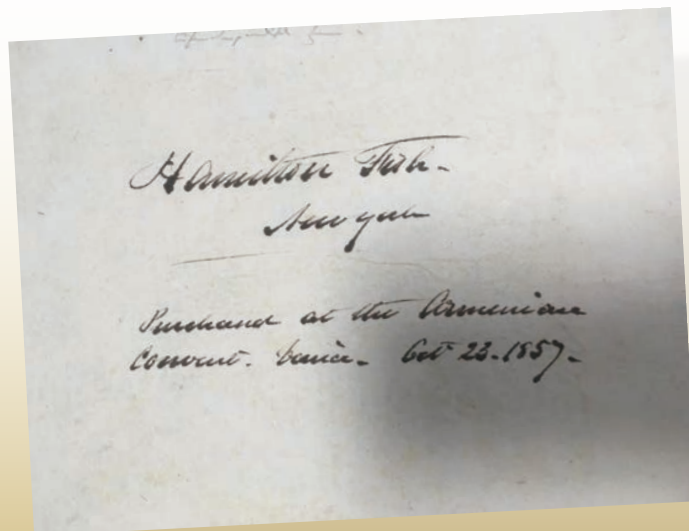 Hamilton Fish.
New York
Purchased at the Armenian
Convent. Venice. Oct 23. 1857.